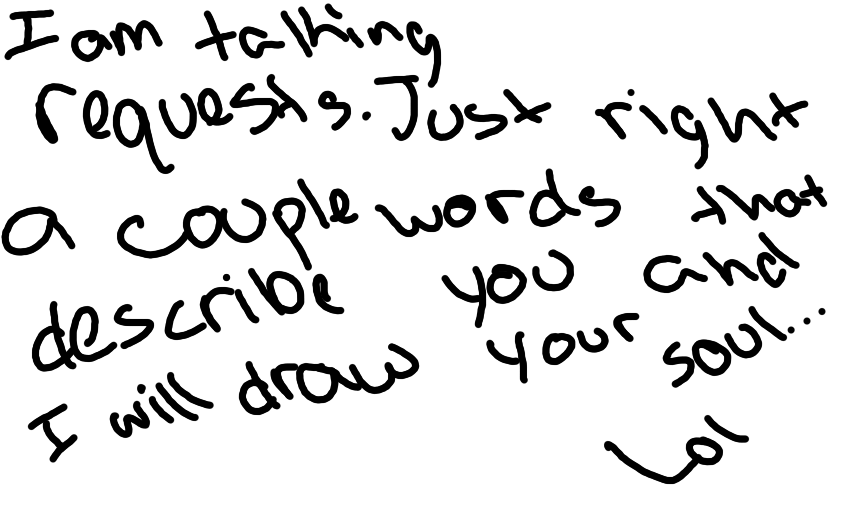 I am talking
requests. Just right
a couple words that
describe you and
I will draw your soul...
Lol